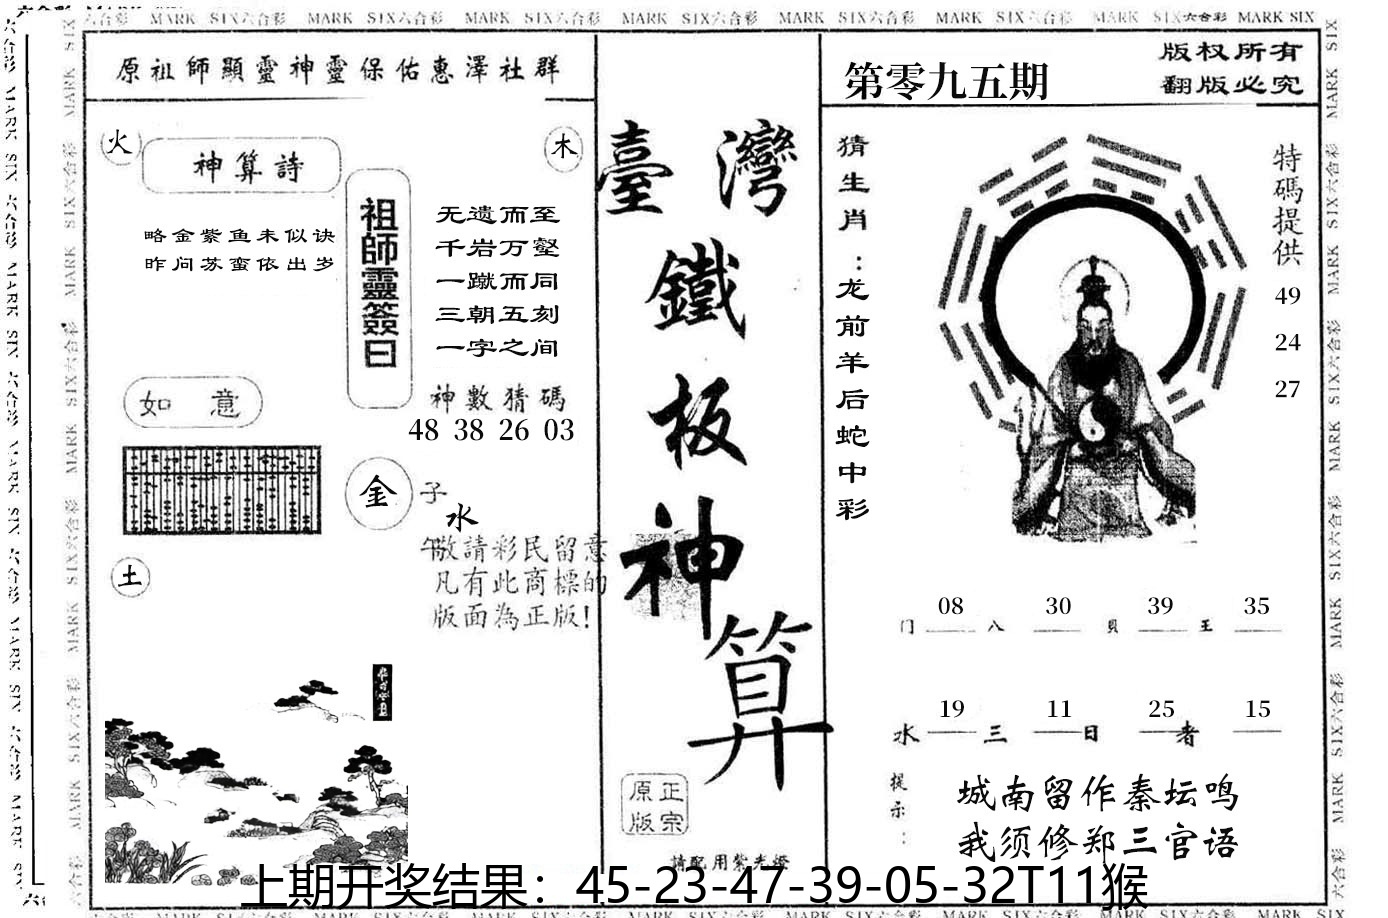 六合彩 MARK SIX六合彩 MARK SIX六合彩 MARK SIX六合彩 MARK SIX六合彩 MARK SIX六合彩 MARK SIX六合彩 MARK SIX六合彩 MARK SIX
原祖師顯靈神靈保佑惠澤社群
火
木
神算詩
略金紫鱼未似诀
昨问苏蛮依出岁
祖師靈簽曰
无遗而至
千岩万壑
一蹴而同
三朝五刻
一字之间
神數猜碼
48 38 26 03
如意
金
子
水
午
土
敬請彩民留意
凡有此商標的
版面為正版!
臺灣
鐵
板
神
算
正宗
原版
請配用紫光燈
第零九五期
版权所有
翻版必究
猜生肖:龙前羊后蛇中彩
特碼提供
49
24
27
门 08 八 30 貝 39 王 35
水 19 三 11 日 25 者 15
提示:
城南留作秦坛鸣
我须修郑三官语
上期开奖结果：45-23-47-39-05-32T11猴